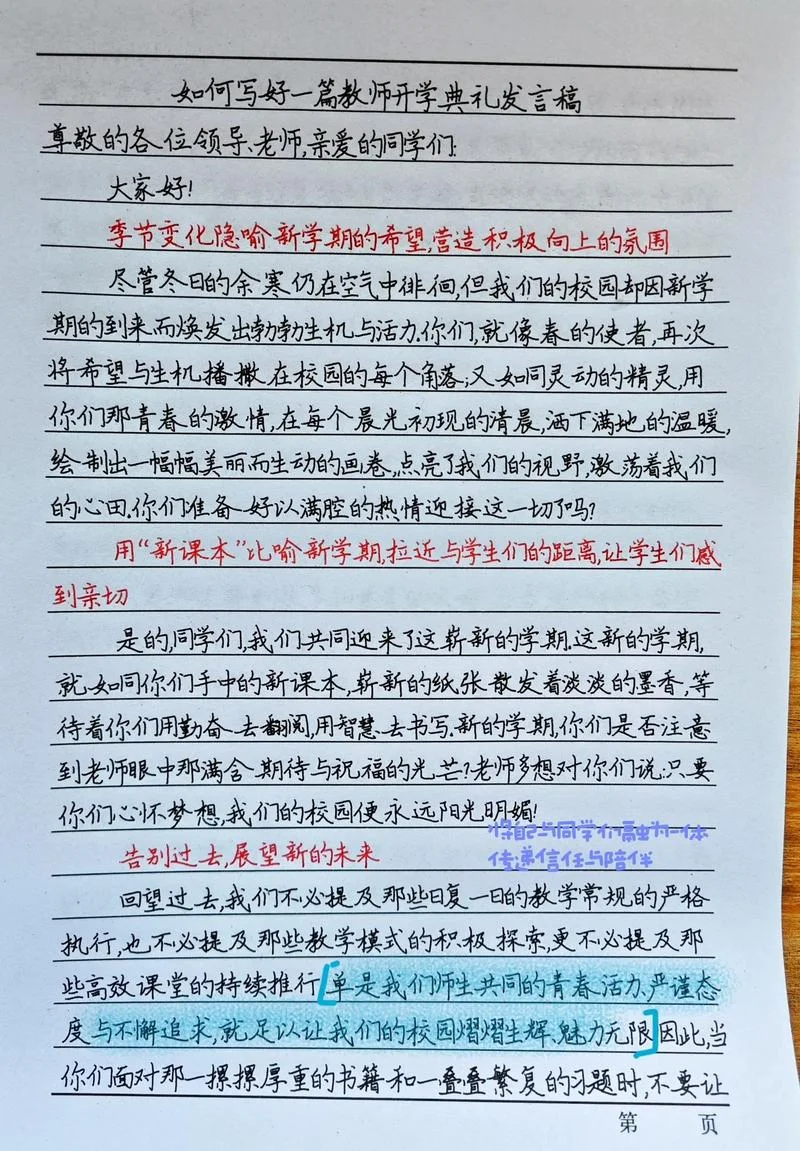 如何写好一篇教师开学典礼发言稿
尊敬的各位领导、老师,亲爱的同学们:
大家好!
季节变化隐喻新学期的希望,营造积极向上的氛围
尽管冬日的余寒仍在空气中徘徊,但我们的校园却因新学
期的到来而焕发出勃勃生机与活力.你们,就像春的使者,再次
将希望与生机播撒在校园的每个角落;又如同灵动的精灵,用
你们那青春的激情,在每个晨光初现的清晨,洒下满地的温暖,
绘制出一幅幅美丽而生动的画卷,点亮了我们的视野,激荡着我们
的心田.你们准备好以满腔的热情迎接这一切了吗?
用“新课本”比喻新学期,拉近与学生们的距离,让学生们感
到亲切
是的,同学们,我们共同迎来了这崭新的学期.这新的学期,
就如同你们手中的新课本,崭新的纸张散发着淡淡的墨香,等
待着你们用勤奋去翻阅,用智慧去书写.新的学期,你们是否注意
到老师眼中那满含期待与祝福的光芒?老师多想对你们说:只要
你们心怀梦想,我们的校园便永远阳光明媚!
将自己与同学们融为一体
传递信任与陪伴
告别过去,展望新的未来
回望过去,我们不必提及那些日复一日的教学常规的严格
执行,也不必提及那些教学模式的积极探索,更不必提及那
些高效课堂的持续推行[单是我们师生共同的青春活力、严谨态
度与不懈追求,就足以让我们的校园熠熠生辉、魅力无限]因此,当
你们面对那一摞摞厚重的书籍和一叠叠繁复的习题时,不要让
第 页